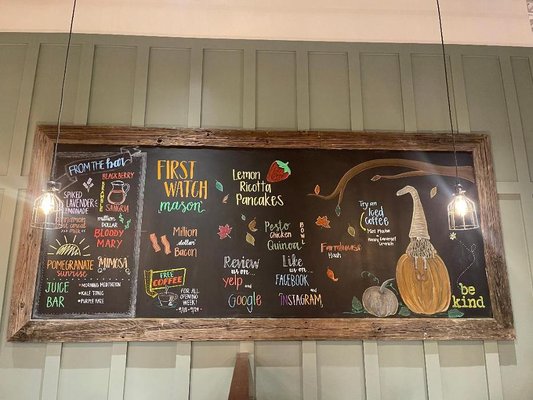 FROM THE bar
SPIKED
LAVENDER
LEMONADE
BLACKBERRY
SANGRIA
Million
dollar
BLOODY
MARY
POMEGRANATE
sunrise
MIMOSA
JUICE
BAR
•MORNING MEDITATION
•KALE TONIC
•PURPLE RAIN
FIRST
WATCH
mason
Million
dollar
Bacon
FREE
COFFEE
FOR ALL
OPENING
WEEK!
Lemon
Ricotta
Pancakes
Review
us on
yelp
and
Google
Pesto
Chicken
Quinoa
BOWL
Like
us on
FACEBOOK
and
INSTAGRAM
Farmhouse
Hash
Try an
Iced
Coffee
be
kind